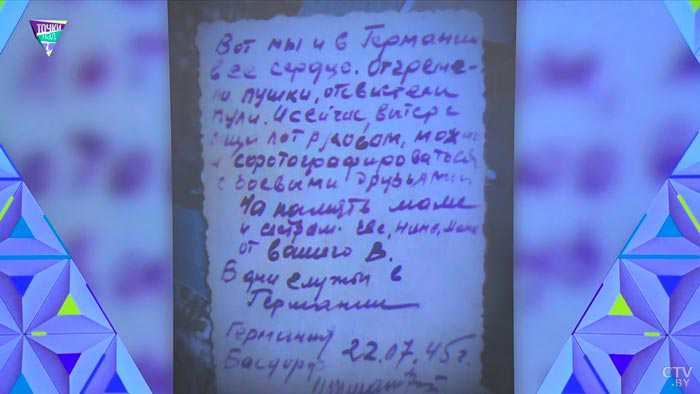 ТОЧКИ
НАД
Вот мы и в Германии
в ее сердце. Отгреме-
ли пушки, отсвистели
пули. И сейчас, вытерев
с лица пот рукавом, можно
и сфотографироваться
с боевыми друзьями
На память маме
и сестрам Еве, Нине, Мане
от вашего В.
В дни службы в
Германии
Германия
Басдорф 22.07.45 г.
CTV
.BY